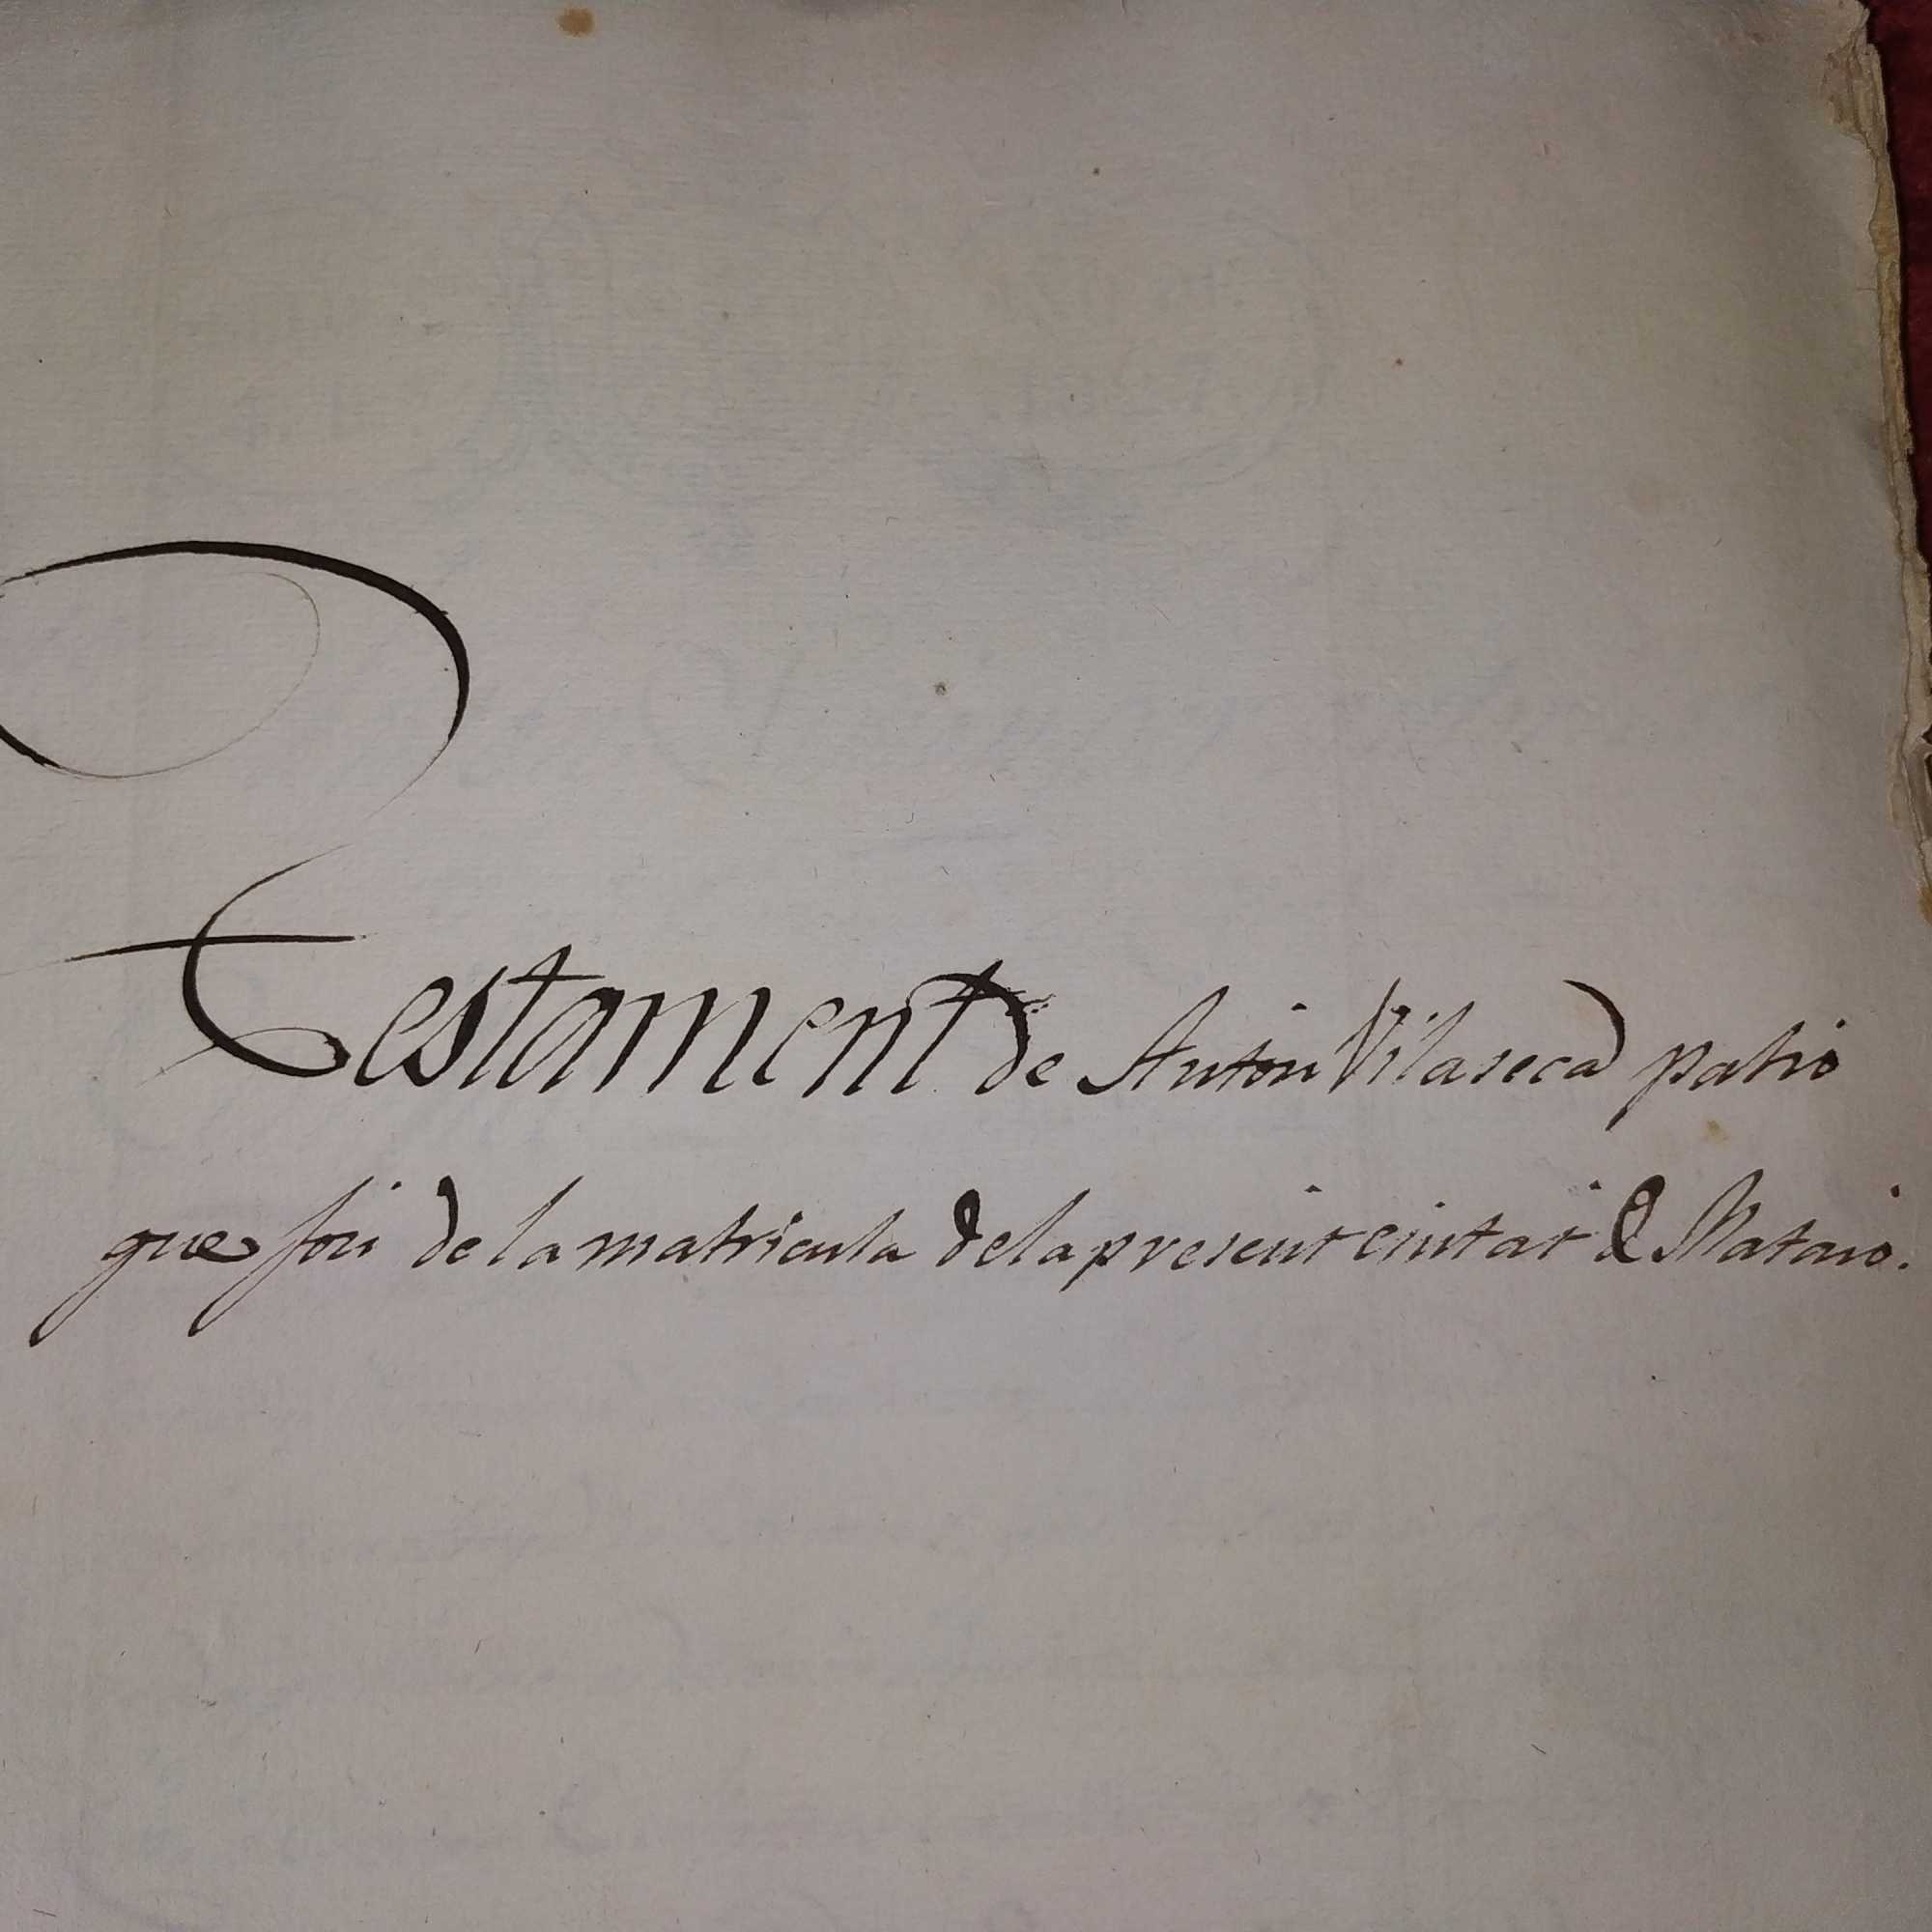 Testament de Anton Vilaseca patró
que fou de la matricula de la present ciutat de Mataró.